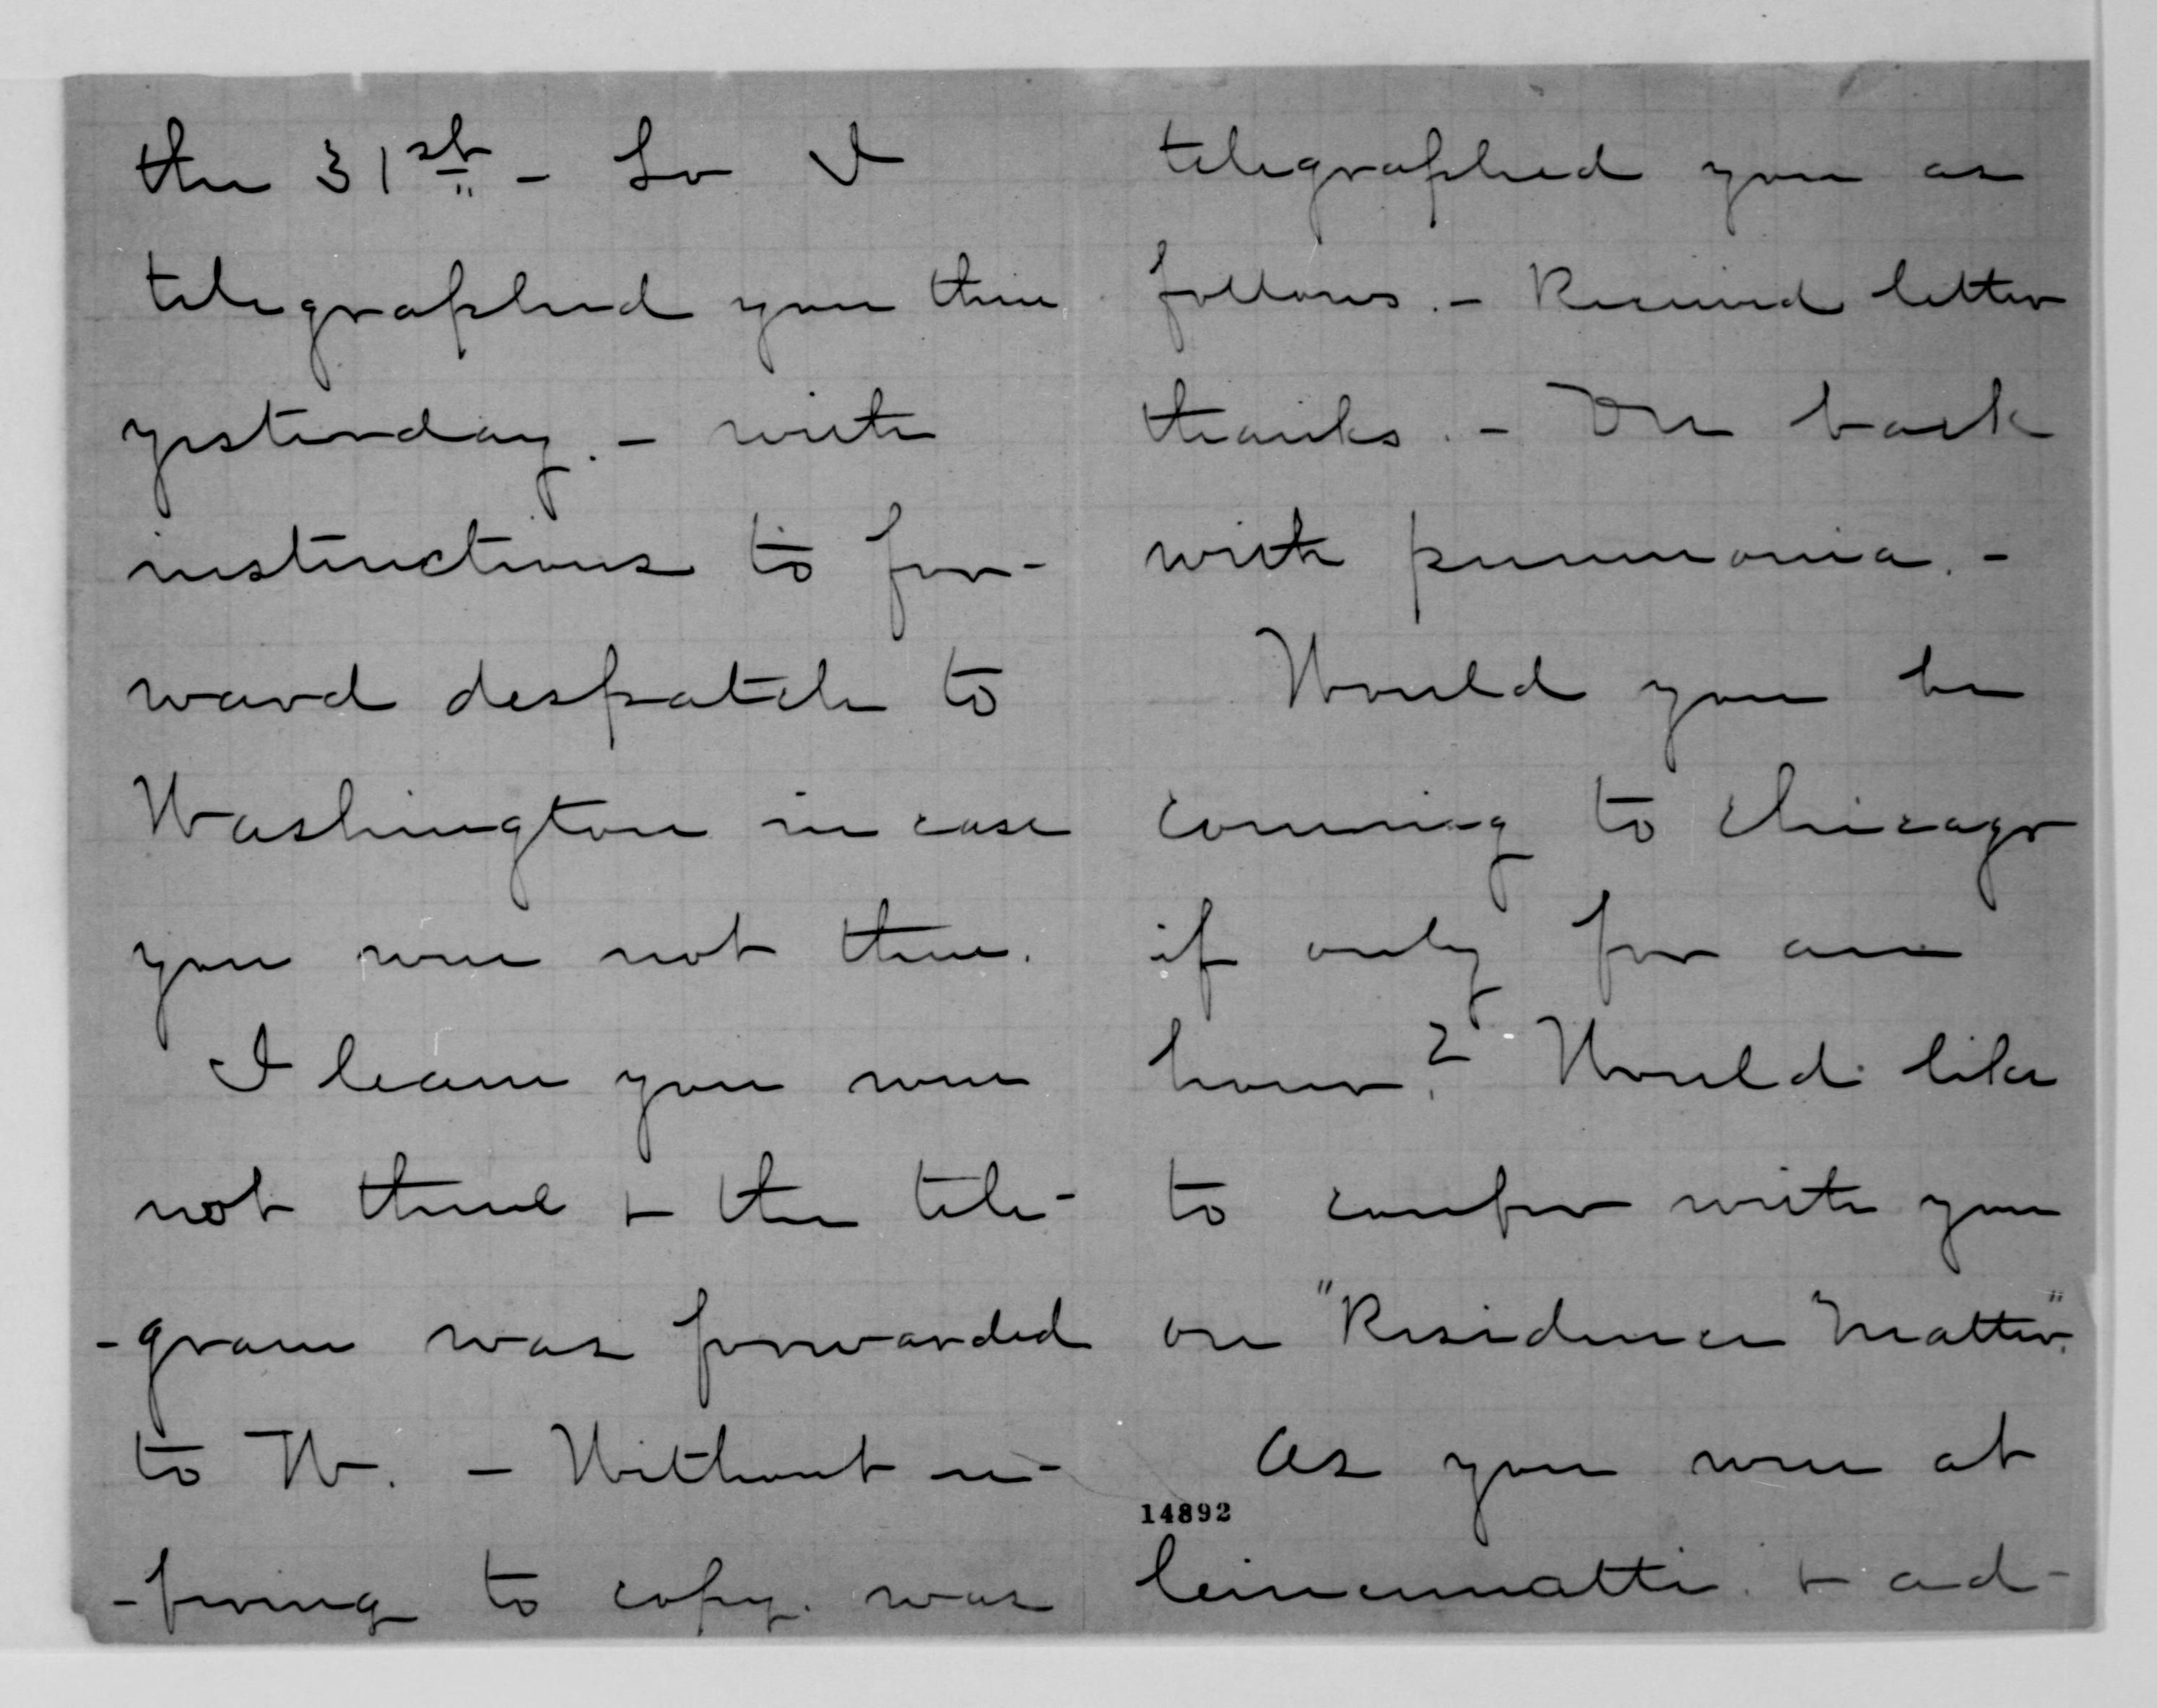 the 31st - So I
telegraphed you there
yesterday. - with
instructions to for-
ward despatch to
Washington in case
you were not there.
I learn you were
not there + the tele-
-gram was forwarded
to W. - Without re-
-fering to copy. was
telegraphed you as
follows. - Received letter
thanks. - On back
with pneumonia. -
Would you be
coming to Chicago
if only for an
hour? Would like
to confer with you
on "Residence Matter."
As you were at
14892
Cincinnatti. + ad-